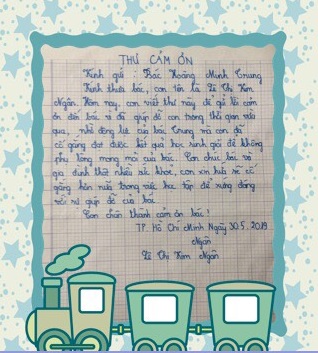 THƯ CẢM ƠN
Kính gửi : Bác Hoàng Minh Trung
Kính thưa bác, con tên là Lê Thị Kim
Ngân. Hôm nay, con viết thư này để gửi lời cảm
ơn đến bác vì đã giúp đỡ con trong thời gian vừa
qua, nhờ động lực của bác Trung mà con đã
cố gắng đạt được kết quả học sinh giỏi để không
phụ lòng mong mỏi của bác. Con chúc bác và
gia đình thật nhiều sức khỏe, con xin hứa sẽ cố
gắng hơn nữa trong việc học tập để xứng đáng
với sự giúp đỡ của bác.
Con chân thành cảm ơn bác!
TP. Hồ Chí Minh Ngày 30.5.2019
Ngân
Lê Thị Kim Ngân